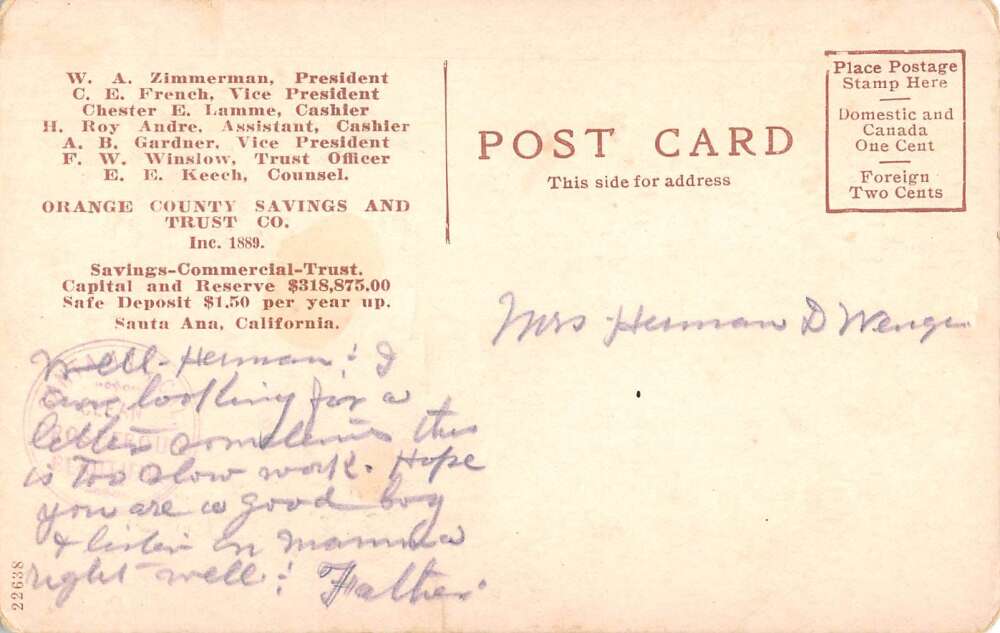 W. A. Zimmerman, President
C. E. French, Vice President
Chester E. Lamme, Cashier
H. Roy Andre, Assistant, Cashier
A. B. Gardner, Vice President
F. W. Winslow, Trust Officer
E. E. Keech, Counsel.
ORANGE COUNTY SAVINGS AND
TRUST CO.
Inc. 1889.
Savings-Commercial-Trust.
Capital and Reserve $318,875.00
Safe Deposit $1.50 per year up.
Santa Ana, California.
POST CARD
This side for address
Place Postage
Stamp Here
Domestic and
Canada
One Cent
Foreign
Two Cents
Mrs Herman D Wenger
Well - Herman! I
am looking for a
letter sometimes this
is too slow work. Hope
you are a good boy
& listen on mamma
right well! Father
CLEAN
22638